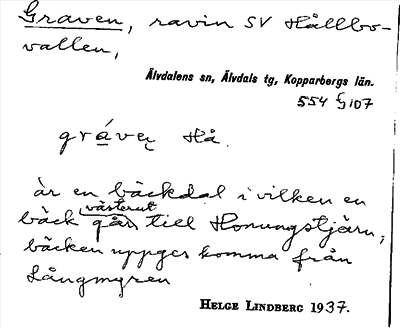 Graven, ravin SV Hållbo-
vallen,
Älvdalens sn, Älvdals tg, Kopparbergs län.
554 G 107
gráven Hå.
är en bäckdal i vilken en
bäck västerut går till Honungstjärn,
bäcken uppges komma från
Långmyren
HELGE LINDBERG 1937.